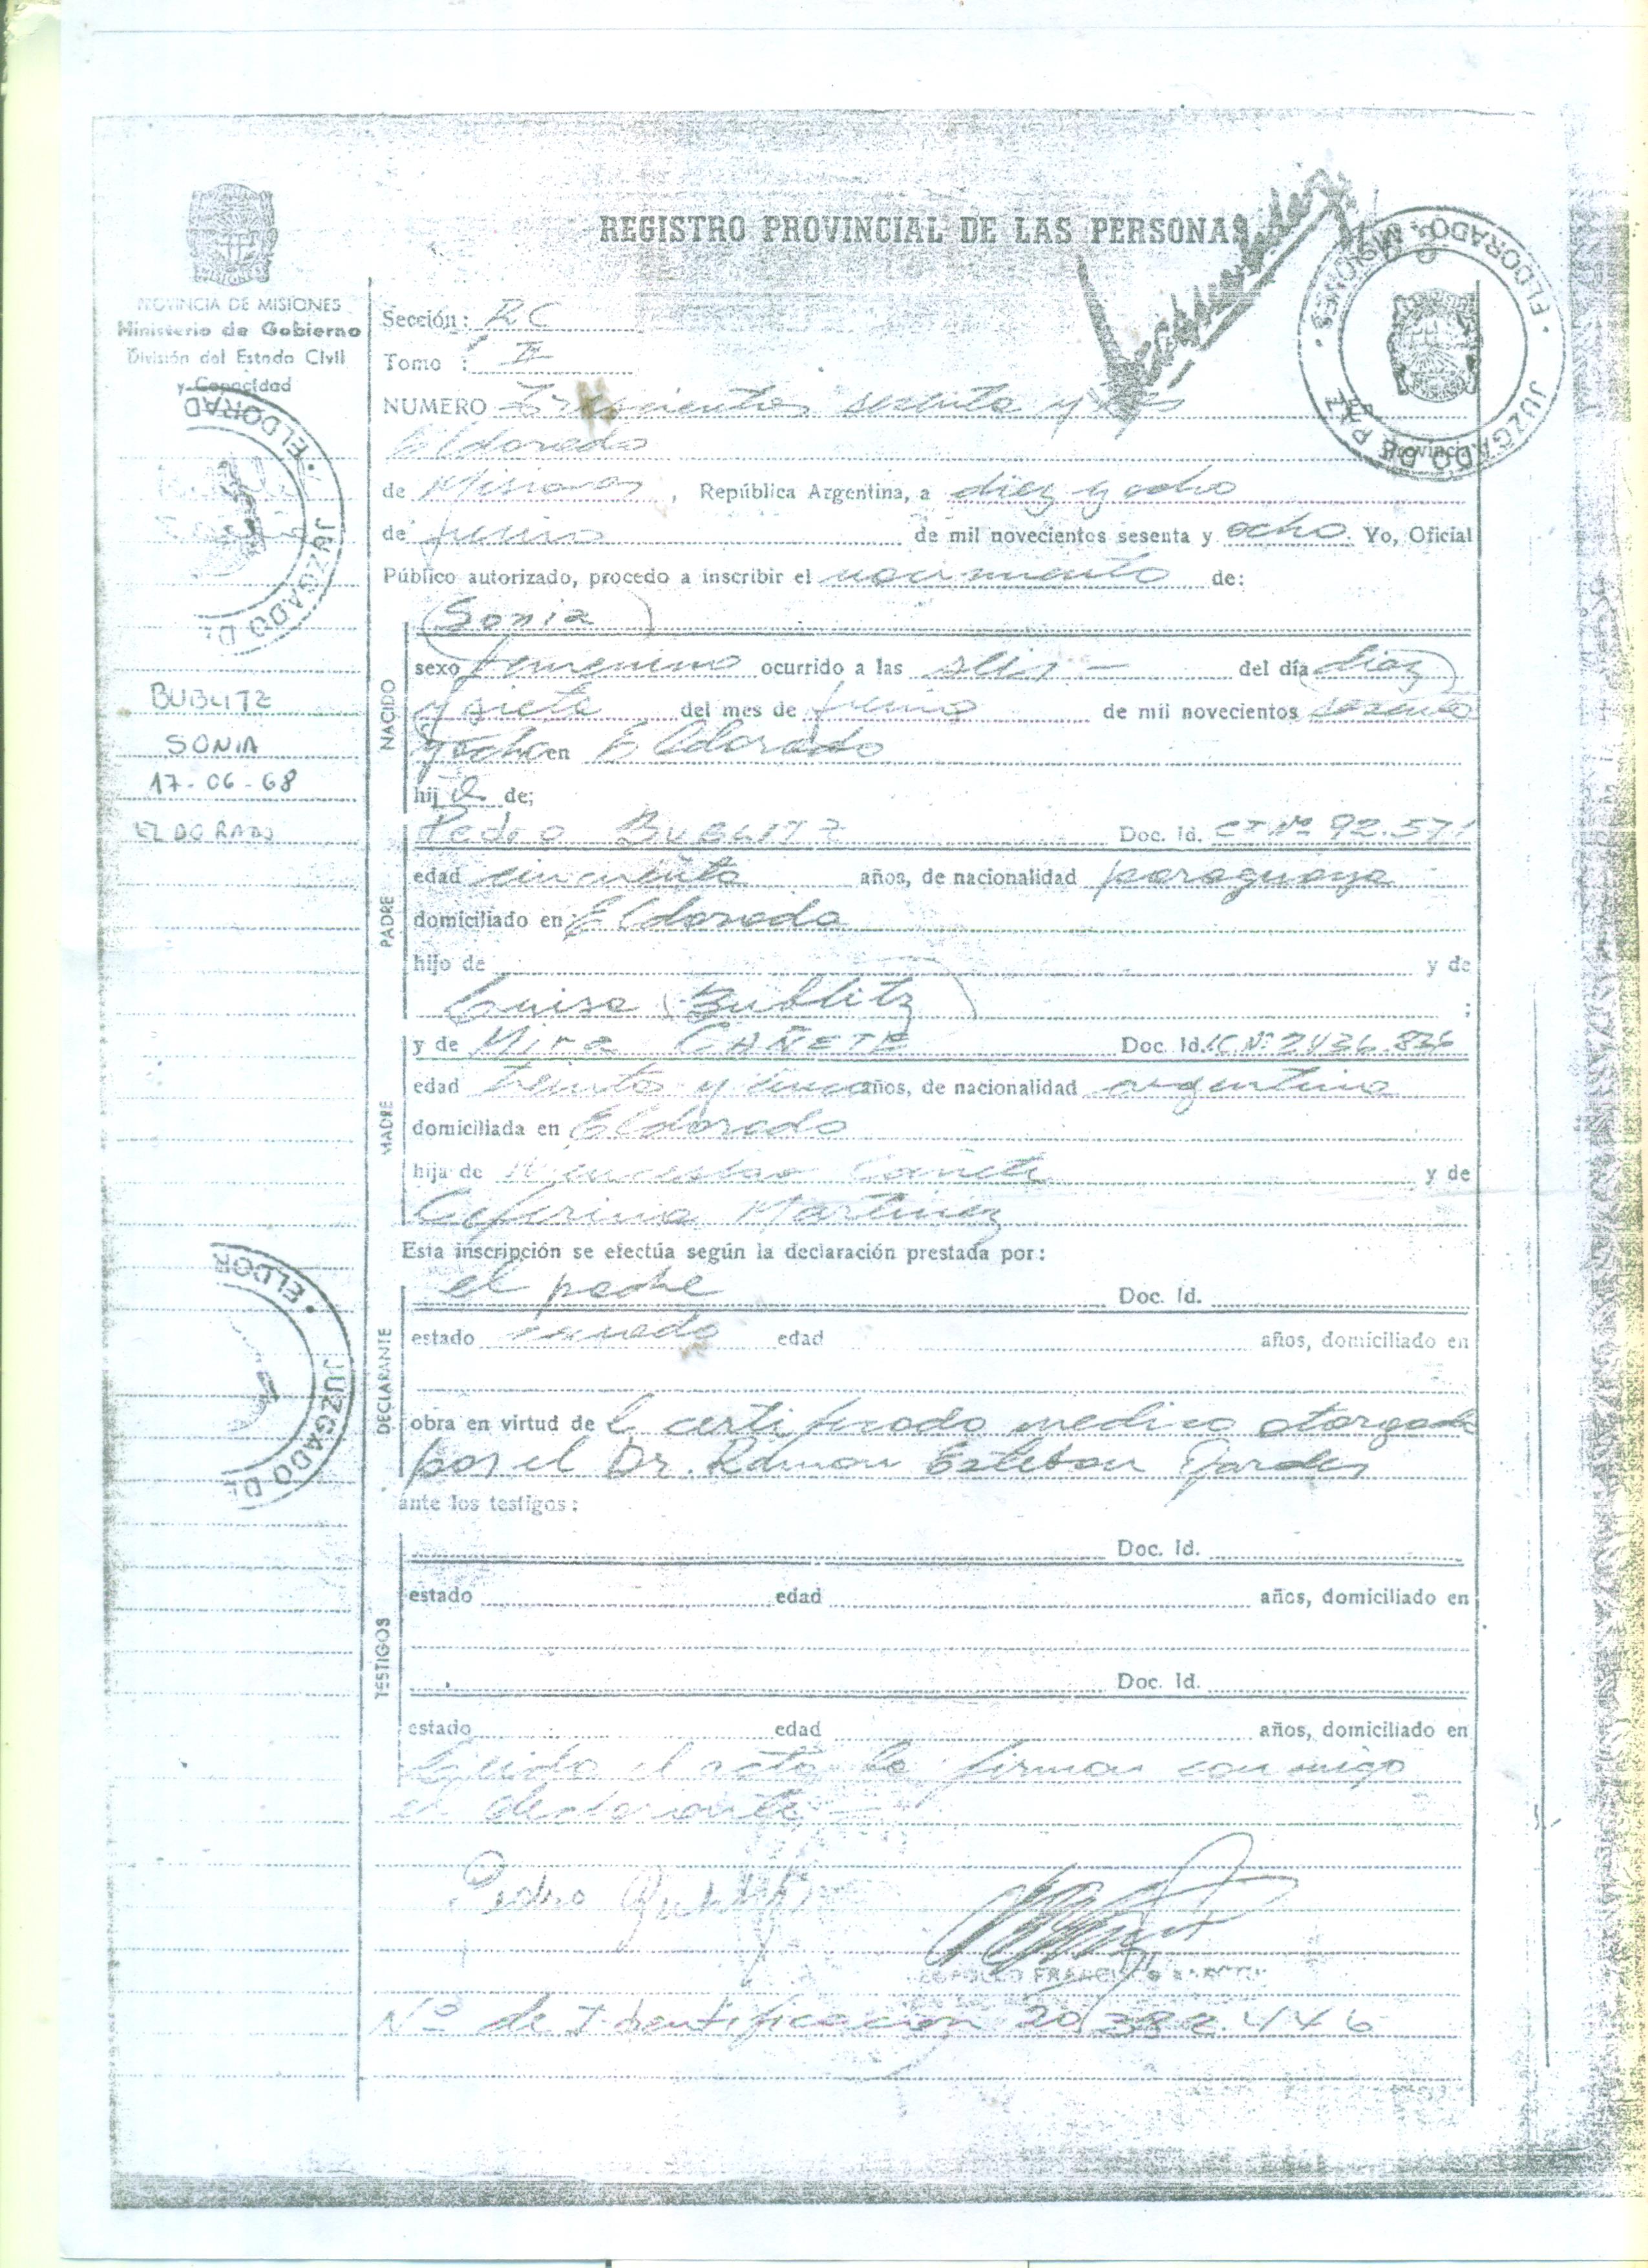 REGISTRO PROVINCIAL DE LAS PERSONAS
PROVINCIA DE MISIONES
Ministerio de Gobierno
División del Estado Civil
y Capacidad
ELDORADO · MISIONES · JUZGADO DE PAZ
Provincia
Sección: RC
Tomo : II
NUMERO Trescientos sesenta y tres
Eldorado
de Misiones, República Argentina, a diez y ocho
de junio de mil novecientos sesenta y ocho. Yo, Oficial
Público autorizado, procedo a inscribir el nacimiento de:
ELDORAD
JUZGADO D
BUBLITZ
SONIA
17-06-68
ELDORADO
NACIDO
Sonia
sexo femenino ocurrido a las seis - del día diez
y siete del mes de junio de mil novecientos sesenta
y ocho en Eldorado
hija de;
PADRE
Pedro BUBLITZ Doc. Id. CI Nº 92.571
edad cincuenta años, de nacionalidad paraguaya
domiciliado en Eldorado
hijo de y de
Luisa Bublitz ;
MADRE
y de Mirta CAÑETE Doc. Id. LC.Nº 2436.836
edad treinta y cinco años, de nacionalidad argentina
domiciliada en Eldorado
hija de Wenceslao Cañete y de
Ceferina Martinez
Esta inscripción se efectúa según la declaración prestada por:
DECLARANTE
el padre Doc. Id.
estado casado edad años, domiciliado en
obra en virtud de l certificado medico otorgado
por el Dr. Ramon Esteban
ante los testigos:
ELDOR
JUZGADO D
TESTIGOS
Doc. Id.
estado edad años, domiciliado en
Doc. Id.
estado edad años, domiciliado en
Leida el acta la firman conmigo
el declarante
Pedro Bublitz
FRANCISCO
Nº de Identificacion 20.382.446